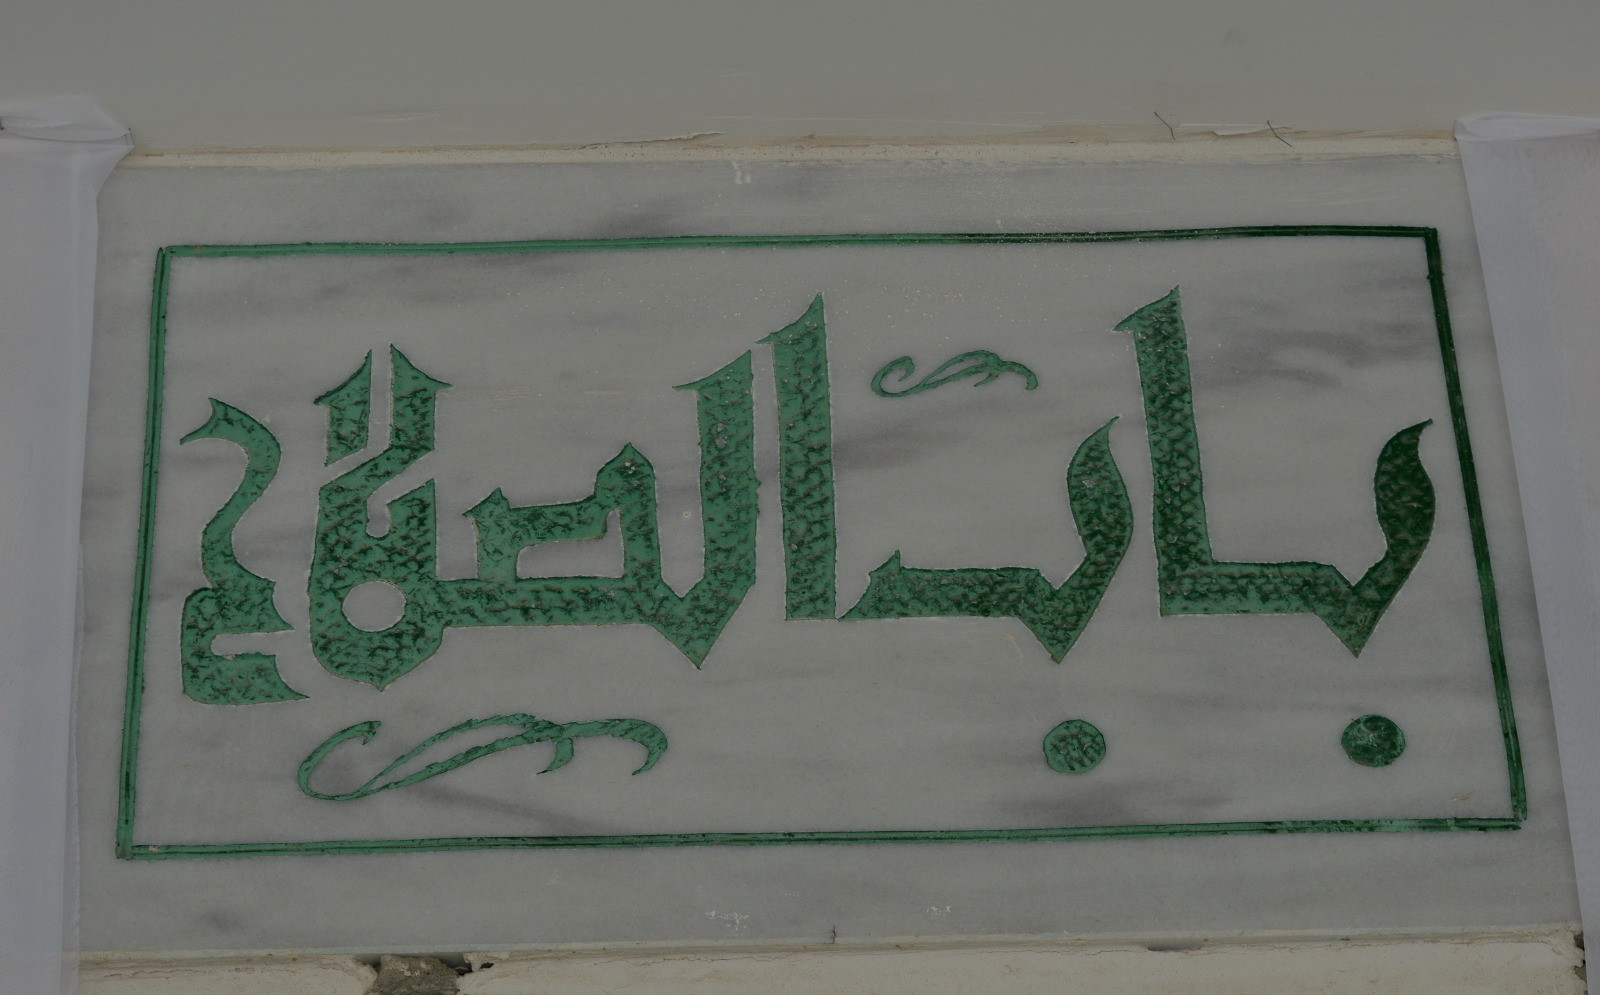 باب الصلاح